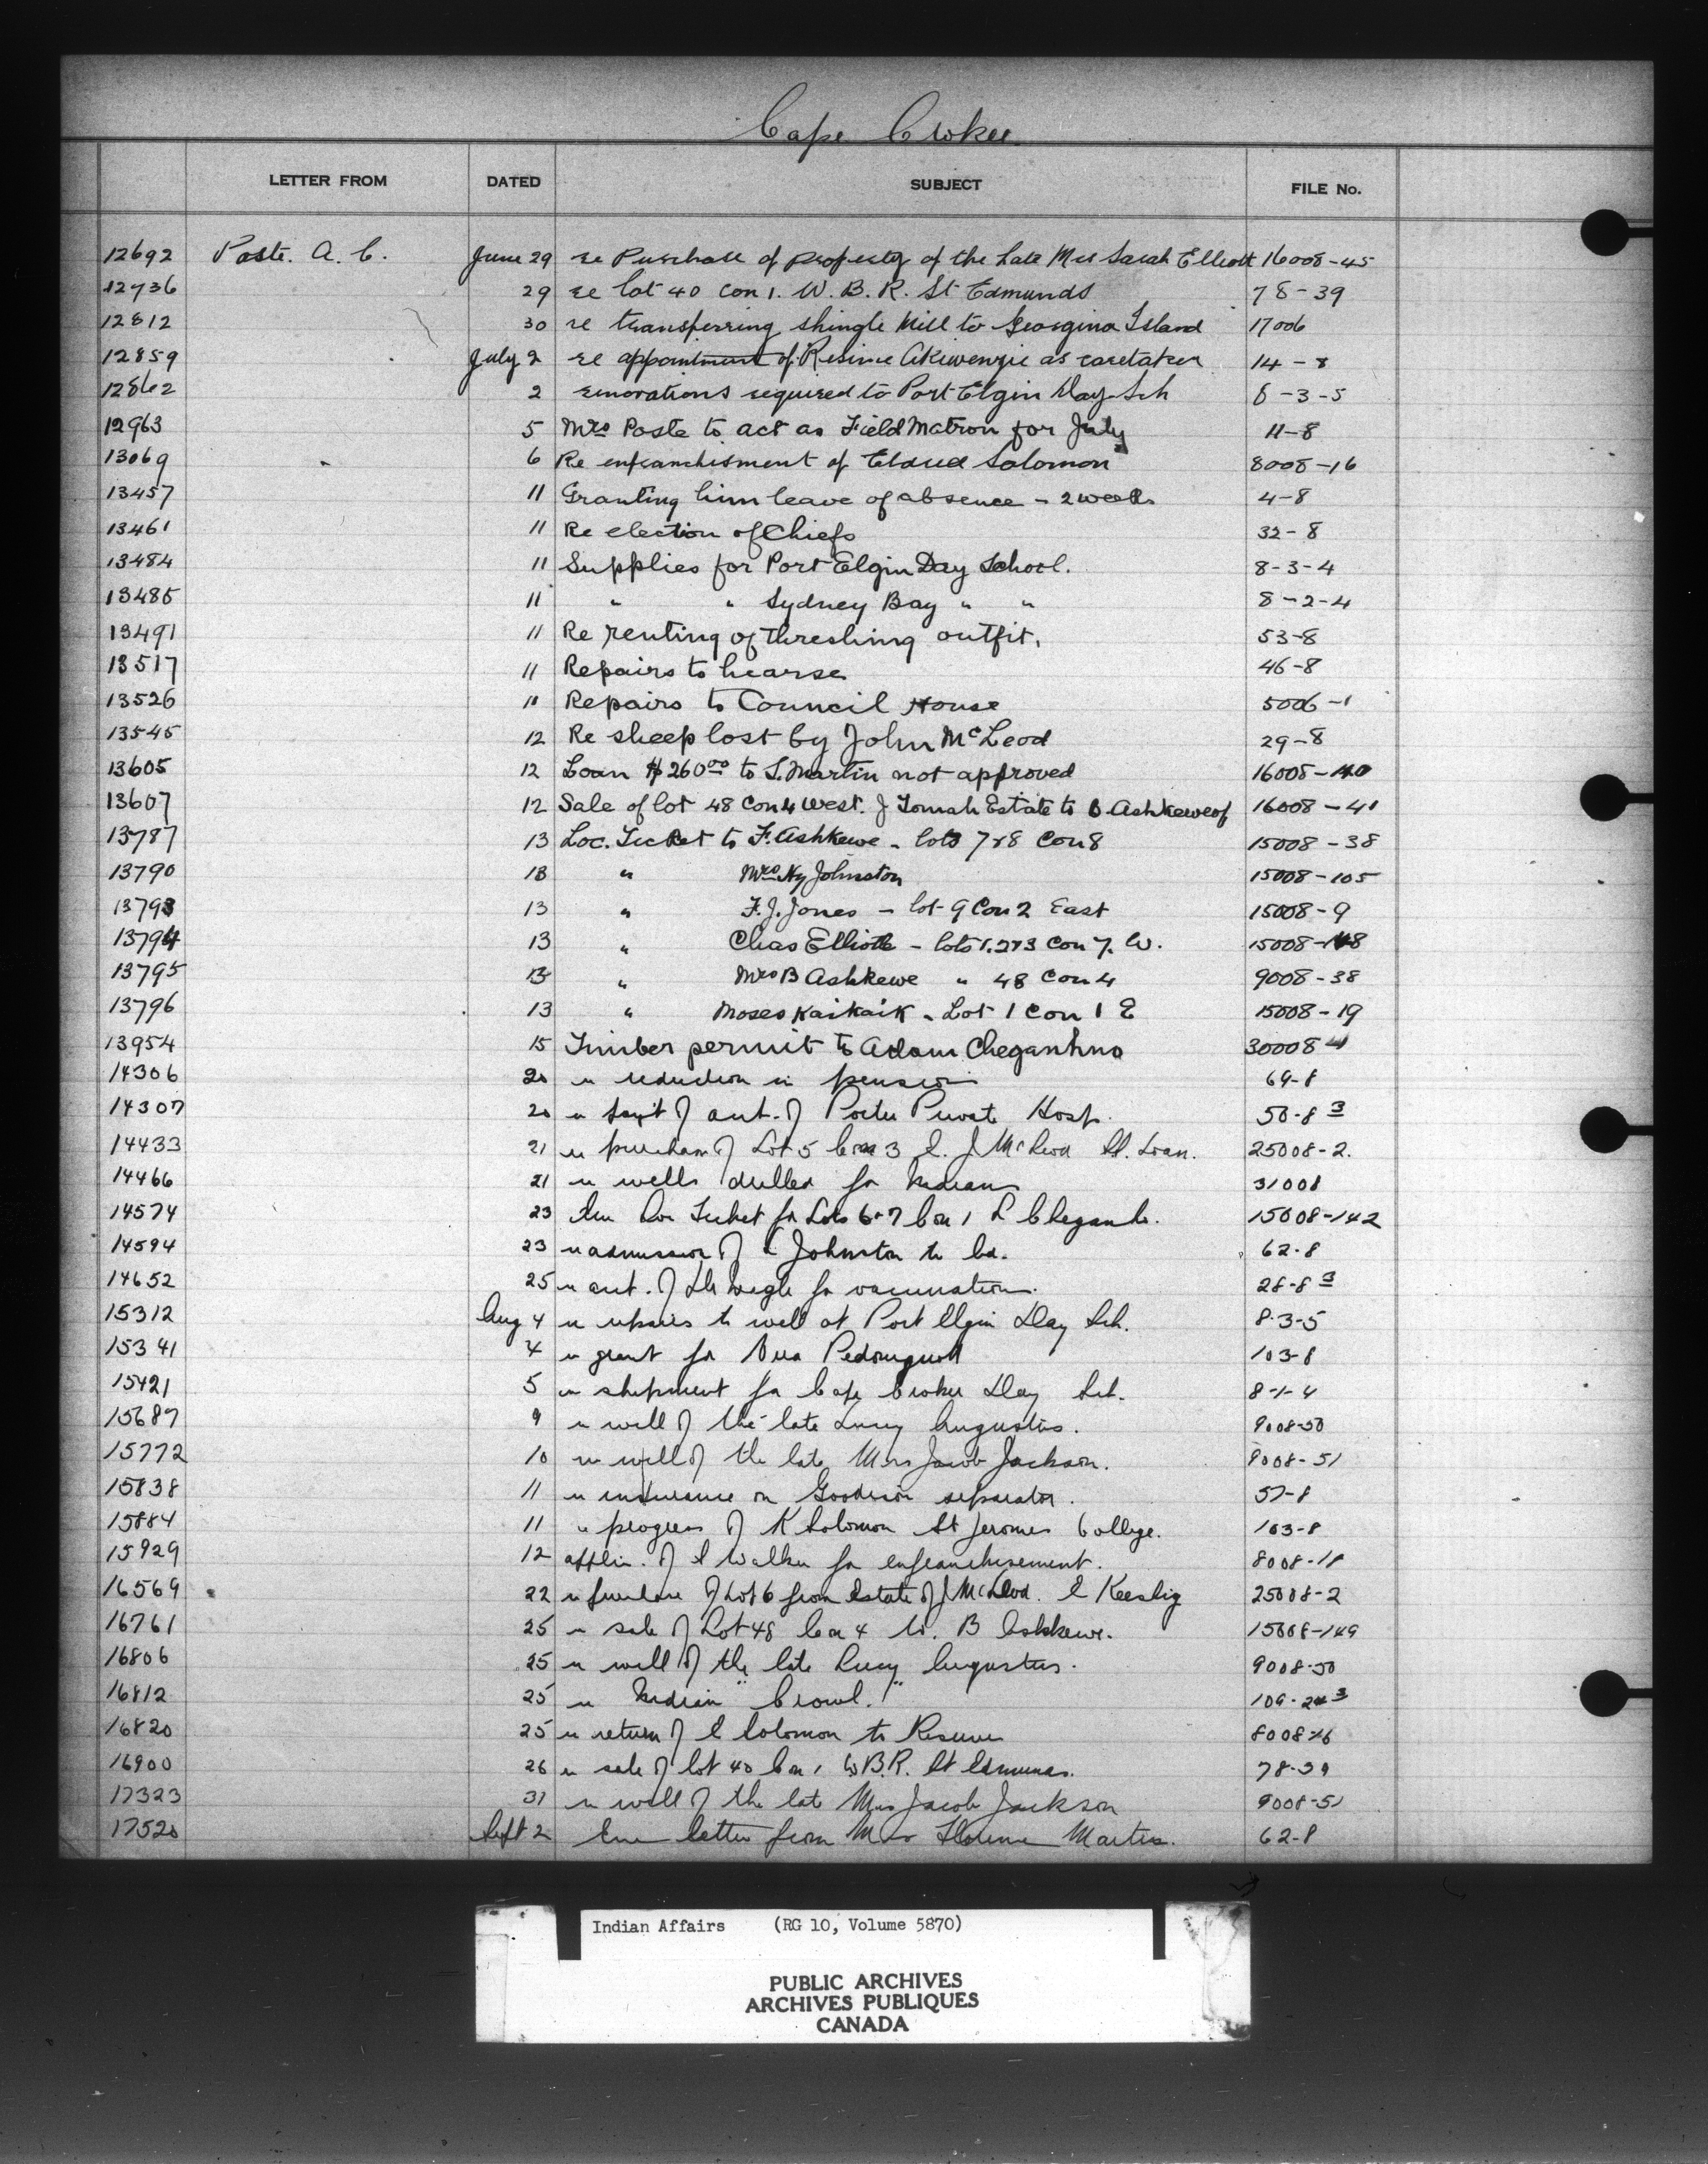 Cape Croker
LETTER FROM DATED SUBJECT FILE No.
12692 Poste. A. C. June 29 re Purchase of property of the Late Mrs Sarah Elliott 16008-45
12736 29 re lot 40 con 1. W. B. R. St Edmunds 78-39
12812 30 re transferring shingle Mill to Georgina Island 17006
12859 July 2 re appointment of Resime Akiwenzie as caretaker 14-8
12862 2 renovations required to Port Elgin Day Sch 8-3-5
12963 5 Mrs Poste to act as Field Matron for July 11-8
13069 6 Re enfranchisment of Eldred Solomon 8008-16
13457 11 Granting him leave of absence - 2 weeks 4-8
13461 11 Re election of Chiefs 32-8
13484 11 Supplies for Port Elgin Day School. 8-3-4
13485 11 " " Sydney Bay " " 8-2-4
13491 11 Re renting of threshing outfit. 53-8
13517 11 Repairs to hearse 46-8
13526 11 Repairs to Council House 5006-1
13545 12 Re sheep lost by John McLeod 29-8
13605 12 Loan $260.00 to S. Martin not approved 16008-40
13607 12 Sale of lot 48 Con 4 West. J Tomah Estate to B Ashkewe 16008-41
13787 13 Loc. Ticket to F. Ashkewe - lots 7 & 8 Con 8 15008-38
13790 13 " Mrs Hy Johnston 15008-105
13793 13 " F. J. Jones - lot 9 Con 2 East 15008-9
13794 13 " Chas Elliott - lots 1. 2 & 3 Con 7. W. 15008-148
13795 13 " Mrs B Ashkewe " 48 Con 4 9008-38
13796 13 " Moses Kaikaik - Lot 1 Con 1 E 15008-19
13954 15 Timber permit to Adam Cheganhno 30008-4
14306 20 re reduction in pension 69-8
14307 20 re of acct. of Porter Private Hosp. 50-8 3
14433 21 re purchase of Lot 5 Con 3 E. J McLeod St. Loan. 25008-2.
14466 21 re wells drilled for Indians 31008
14574 23 Loc Ticket for Lots 6 & 7 Con 1 15008-142
14594 23 re admission of Johnston to bd. 62-8
14652 25 re acct. of Dr Wigle for vaccination. 28-8 3
15312 Aug 4 re repairs to well at Port Elgin Day Sch. 8-3-5
15341 4 re grant for 103-8
15421 5 re shipment for Cape Croker Day Sch. 8-1-4
15687 9 re will of the late Lucy Augustus. 9008-50
15772 10 re will of the late Mrs Jacob Jackson. 9008-51
15838 11 re insurance on Goodison separator. 57-8
15884 11 re progress of K Solomon St Jeromes College. 103-8
15929 12 applin. of Walker for enfranchisement. 8008-18
16569 22 re purchase of Lot 6 from Estate of J McLeod. E Keeshig 25008-2
16761 25 re sale of Lot 48 Con 4 W. B Ashkewe. 15008-149
16806 25 re will of the late Lucy Augustus. 9008-50
16812 25 re Indian "Crowd." 109-24 3
16820 25 re return of E Solomon to Reserve 8008-16
16900 26 re sale of lot 40 Con 1 W B.R. St Edmunds. 78-39
17323 31 re will of the late Mrs Jacob Jackson 9008-51
17520 Sept 2 Enc letter from Mrs Florence Martin. 62-8
Indian Affairs (RG 10, Volume 5870)
PUBLIC ARCHIVES
ARCHIVES PUBLIQUES
CANADA